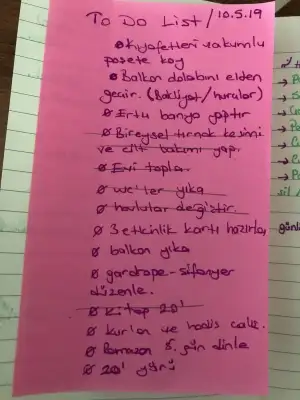 To Do List / 10.5.19
Kıyafetleri vakumlu
poşete koy
Balkon dolabını elden
geçir. (Bakliyat/hurçlar)
Ertu banyo yaptır
Bireysel tırnak kesimi
ve cilt bakımı yap.
Evi topla.
wc'ler yıka
havlular değiştir.
3 etkinlik kartı hazırla
balkon yıka
gardrope - şifonyer
düzenle.
Kitap 20'
Kur'an ve hadis çalış.
Ramazan 5. gün dinle
20' yürü